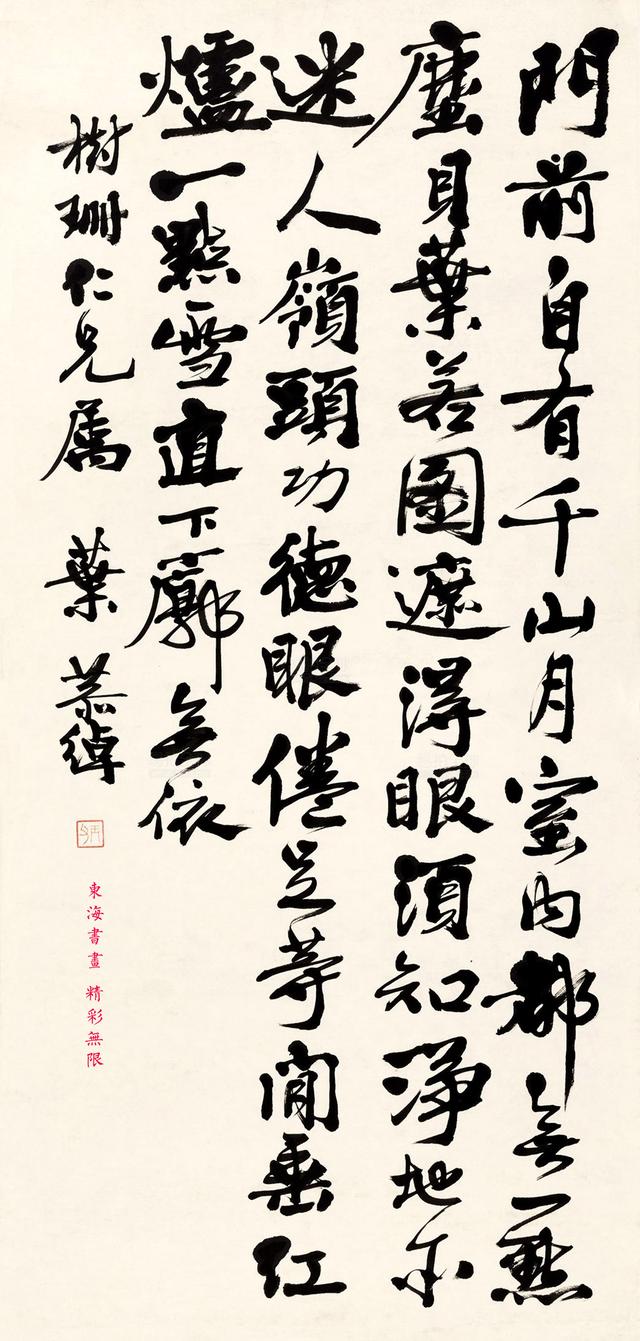 門前自有千山月室內都無一點
塵貝葉若圖遮得眼須知淨地亦
迷人嶺頭功德眼倦足等閒垂紅
爐一點雪直下廓無依
樹珊仁兄屬 葉恭綽
東海書畫 精彩無限